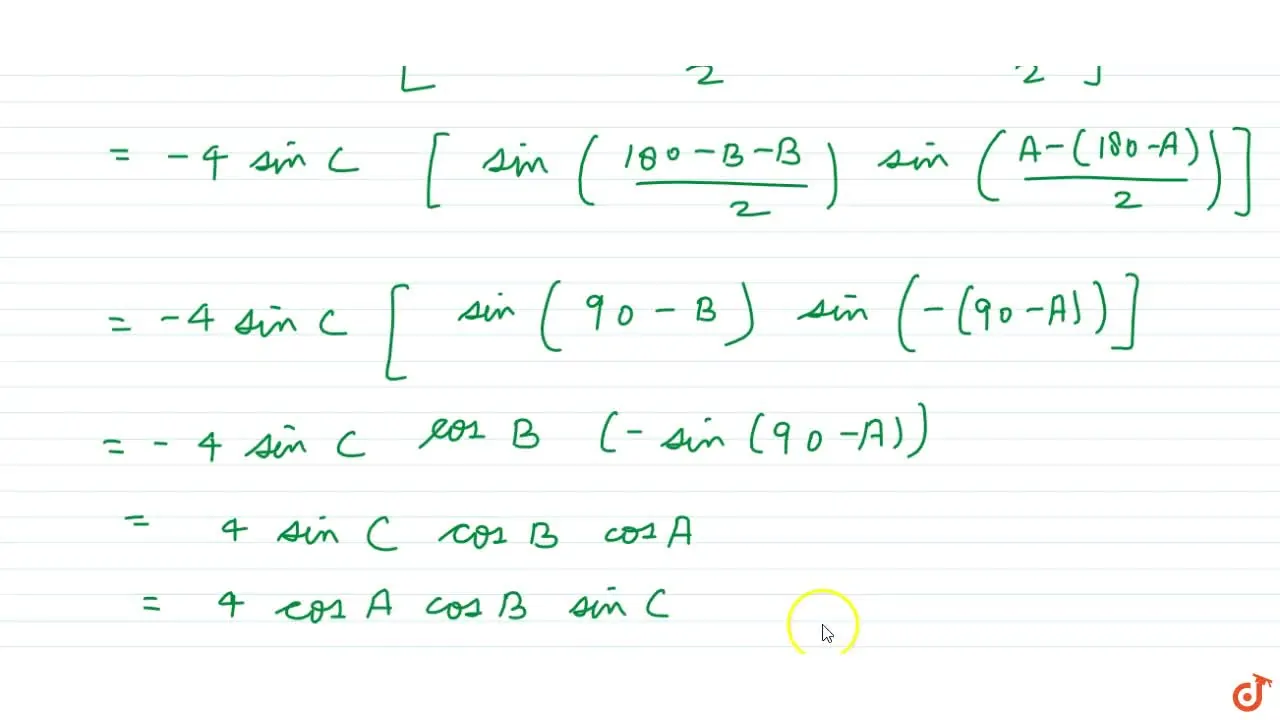 [ 2 2 ]
= - 4 sin C [ sin ( (180 - B - B) / 2 ) sin ( (A - (180 - A)) / 2 ) ]
= - 4 sin C [ sin ( 90 - B ) sin ( - (90 - A) ) ]
= - 4 sin C cos B ( - sin (90 - A) )
= 4 sin C cos B cos A
= 4 cos A cos B sin C